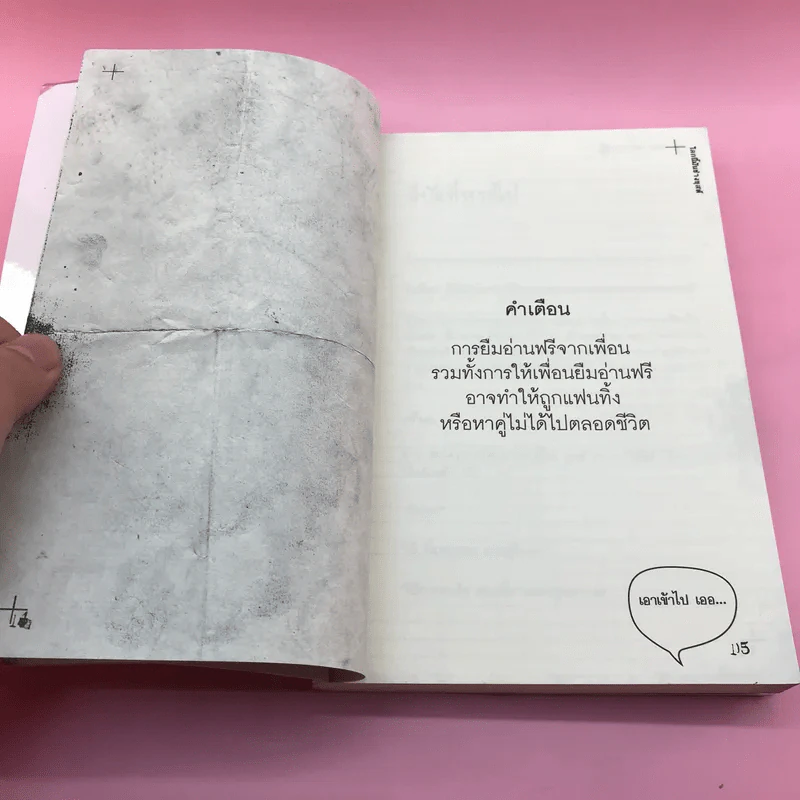 คำเตือน
การยืมอ่านฟรีจากเพื่อน
รวมทั้งการให้เพื่อนยืมอ่านฟรี
อาจทำให้ถูกแฟนทิ้ง
หรือหาคู่ไม่ได้ไปตลอดชีวิต
เอาเข้าไป เออ...